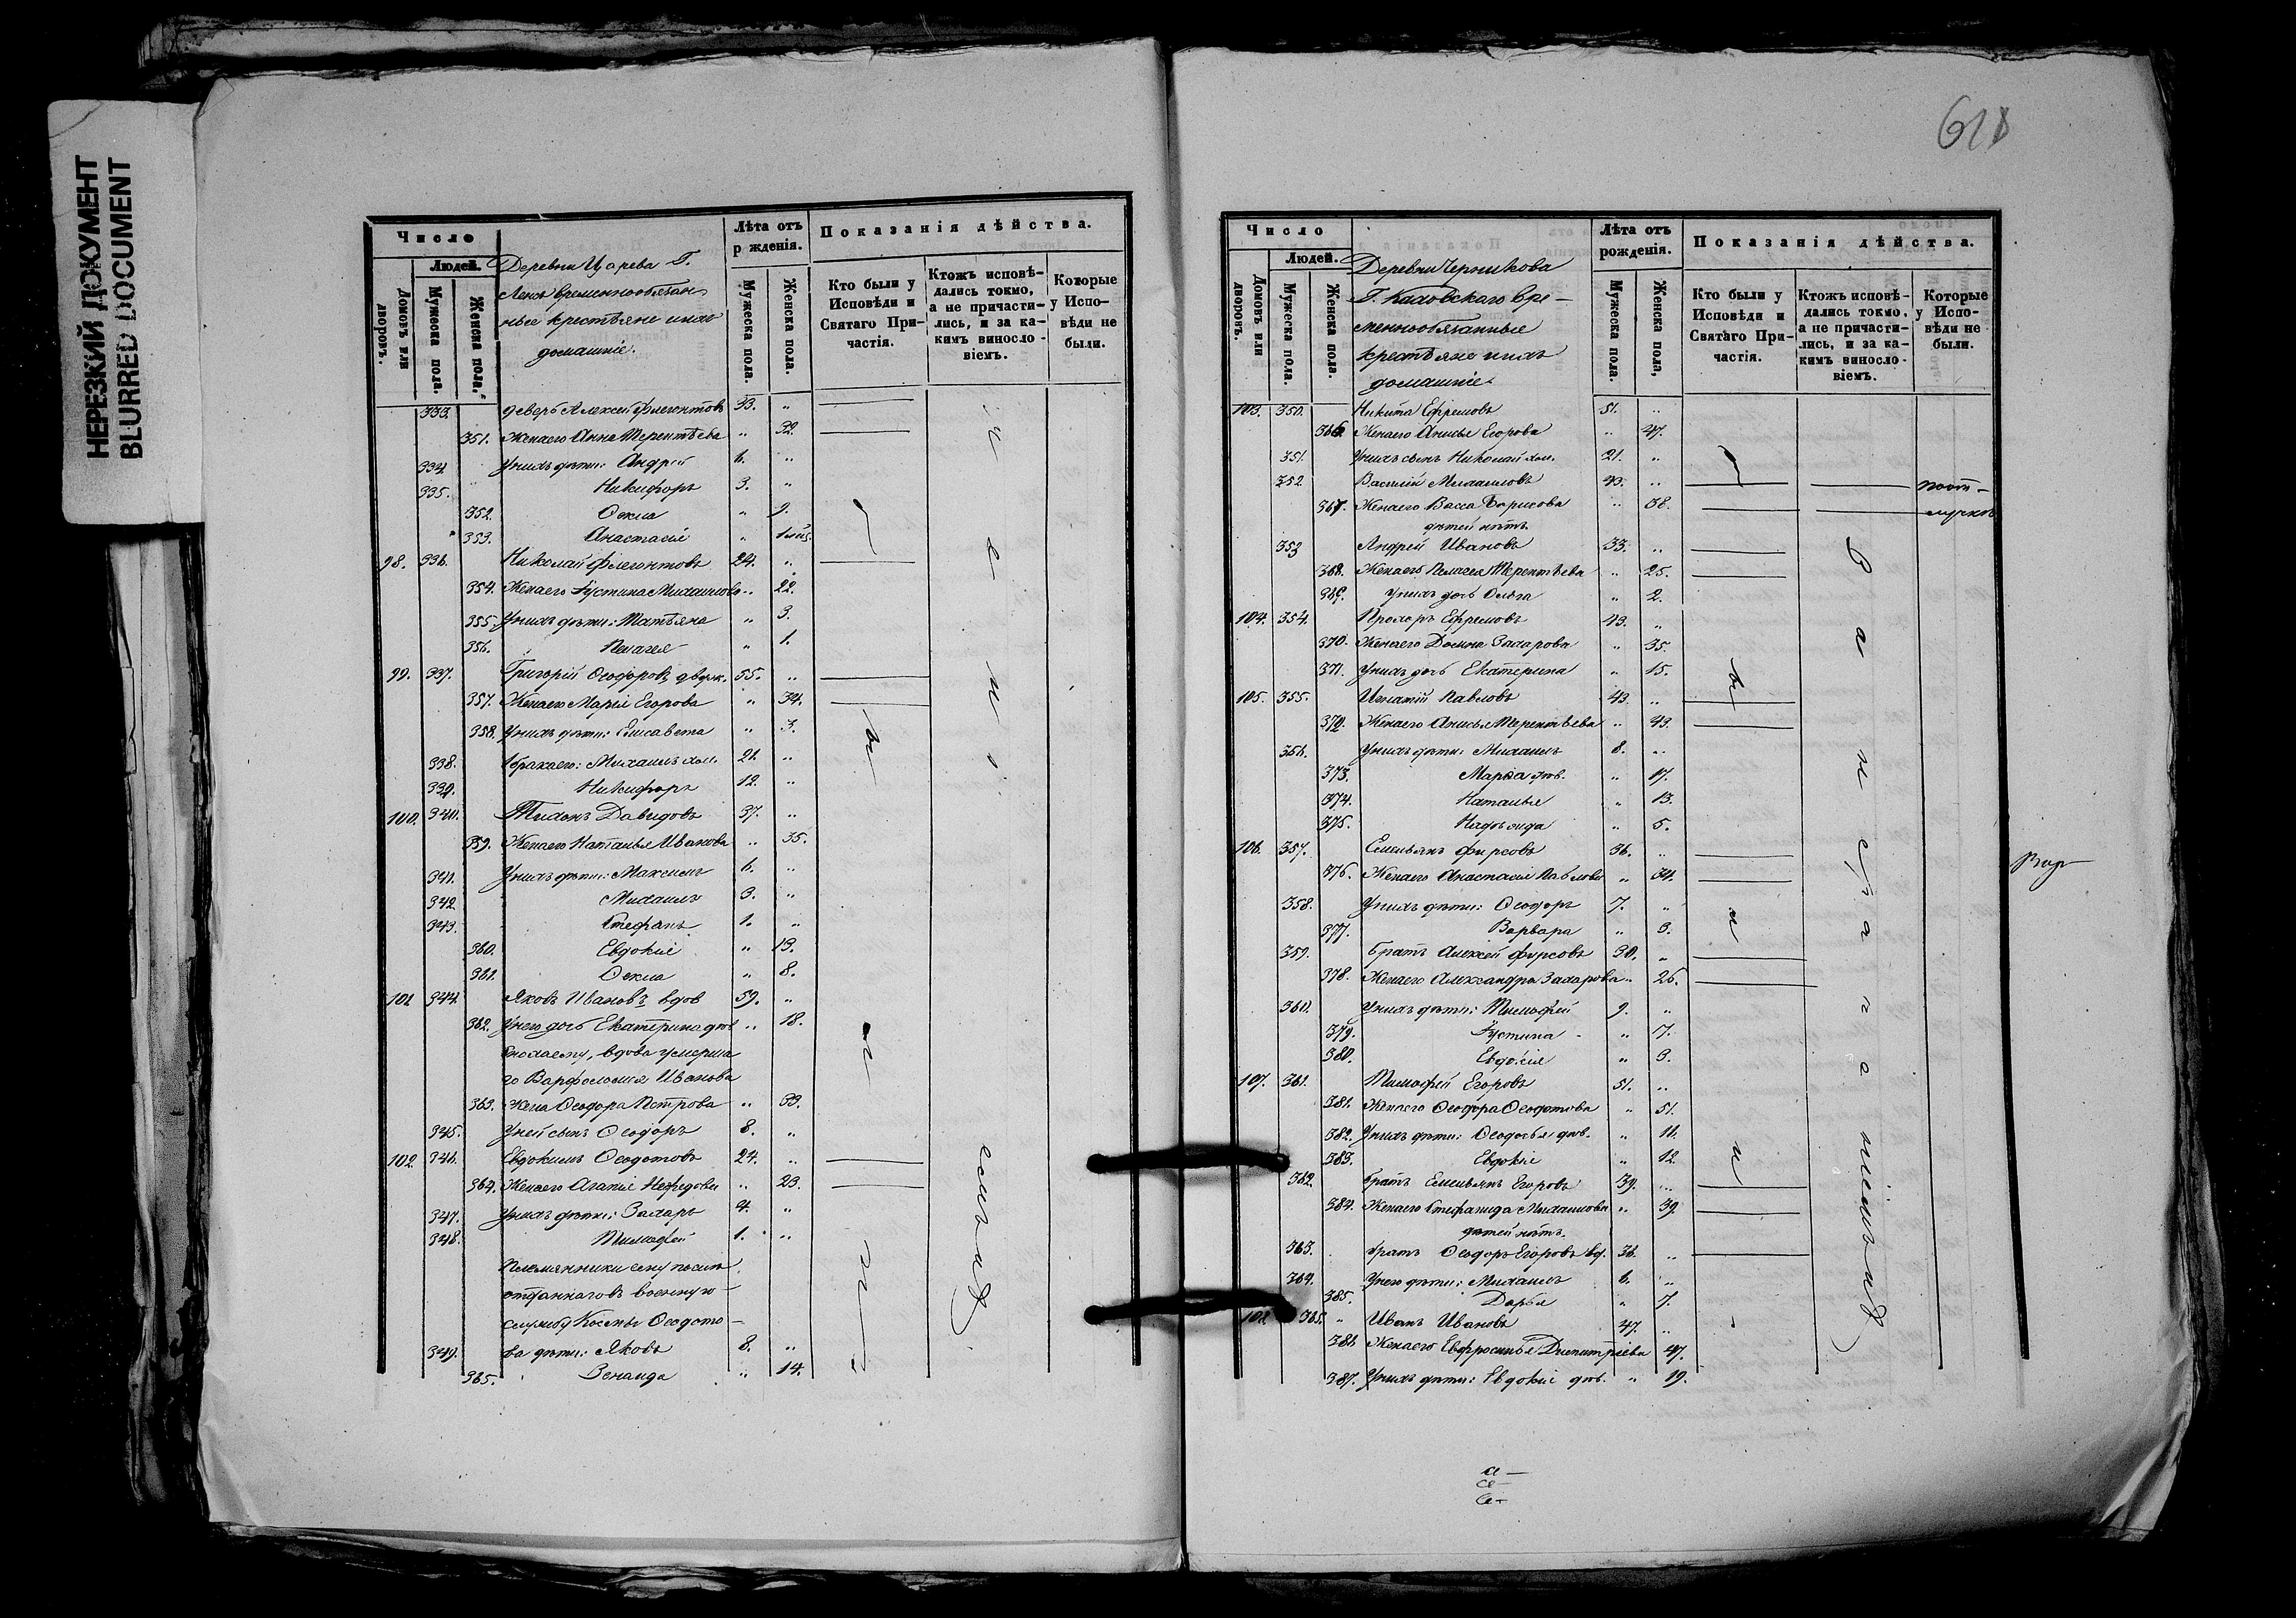 НЕРЕЗКИЙ ДОКУМЕНТ
BLURRED DOCUMENT
Число
Людей.
Домовъ или дворовъ.
Мужеска пола.
Женска пола.
Деревни Царева Г.
временнообязан-
ные крестьяне и ихъ
домашніе.
Лѣта отъ
р жденія.
Мужеска пола.
Женска пола.
Показанія дѣйства.
Кто были у Исповѣди и Святаго При-частія.
Ктожъ исповѣ-дались токмо, а не причасти-лись, и за ка-кимъ винос­ло-віемъ.
Которые у Испо-вѣди не были.
333. деверь Алексей Флегонтовъ 33. "
351. Жена его Анна Терентьева " 32.
334. У нихъ дѣти: Андрей 6. "
335. Никифоръ 3. "
352. Ѳекла " 9.
353. Анастасія "
98. 336. Николай Флегонтовъ 24. "
354. Жена его Іустина Михаилова " 22.
355. У нихъ дѣти: Татьяна " 3.
356. Пелагея " 1.
99. 337. Григорій Ѳеодоровъ 55. "
357. Жена его Марія Егорова " 34.
358. У нихъ дѣти: Елисавета " 3.
338. Братья его: Михаилъ хол. 21. "
339. Никифоръ 12. "
100. 340. Тихонъ Давидовъ 37. "
359. Жена его Наталья Иванова " 35.
341. У нихъ дѣти: Максимъ 6. "
342. Михаилъ 3. "
343. Стефанъ 1. "
360. Евдокія " 13.
361. Ѳекла " 8.
101 344. Яковъ Ивановъ вдов 59. "
362. У него дочь Екатерина дѣв " 18.
Сноха ему, вдова умерша
го Варфоломея Иванова
363. жена Ѳеодора Петрова " 33.
345. У ней сынъ Ѳеодоръ 8. "
102. 346. Евдокимъ Ѳеодотовъ 24. "
364. Жена его Агапія Нефедова " 23.
347. У нихъ дѣти: Захаръ 4. "
348. Тимофей 1. "
Племянники ему
отданнаго въ военную
службу Космы Ѳеодото-
349. ва дѣти: Яковъ 8. "
365. Зенаида " 14.
618
Число
Людей.
Домовъ или дворовъ.
Мужеска пола.
Женска пола.
Деревни Черникова
Г. вре-
меннообязанные
крестьяне и ихъ
домашніе
Лѣта отъ
рожденія.
Мужеска пола.
Женска пола,
Показанія дѣйства.
Кто были у Исповѣди и Святаго При-частія.
Ктожъ исповѣ-дались токмо, а не причасти-лись, и за ка-кимъ винос­ло-віемъ.
Которые у Испо-вѣди не были.
103. 350. Никита Ефремовъ 51. "
366. Жена его Анисья Егорова " 47.
351. У нихъ сынъ Николай хол. 21. "
352. Василій Михаиловъ 43. "
367. Жена его Васса Борисова " 38.
дѣтей нѣтъ
353 Андрей Ивановъ 33. "
368. Жена его Пелагея Терентьева " 25.
369. У нихъ дочь Ольга " 2.
104. 354. Прохоръ Ефремовъ 43. "
370. Жена его Домна Захарова " 35.
371. У нихъ дочь Екатерина " 15.
105. 355. Игнатій Павловъ 43. "
372. Жена его Анисья Терентьева " 43.
356. У нихъ дѣти: Михаилъ 8. "
373. Марѳа дѣв. " 17.
374. Наталья " 13.
375. Надежда " 5.
106. 357. Емельянъ Фирсовъ 36. "
376. Жена его Анастасія Павлова " 34.
358. У нихъ дѣти: Ѳеодоръ 7. "
377. Варвара " 3.
359. Братъ Алексей Фирсовъ 30. "
378. Жена его Александра Захарова " 26.
360. У нихъ дѣти: Тимофей 9. "
379. Іустина " 7.
380. Евдокія " 3.
107. 361. Тимофей Егоровъ 51. "
381. Жена его Ѳеодора Ѳеодотова " 51.
382. У нихъ дѣти: Ѳеодосья дѣв.
383. Евдокія " 12.
362. братъ Емельянъ Егоровъ 39. "
384. Жена его Стефанида Михаилова " 39.
дѣтей нѣтъ.
363. братъ Ѳеодоръ Егоровъ вд. 36. "
364. У него дѣти: Михаилъ 6. "
385. Дарья " 7.
108. 365. Иванъ Ивановъ 47. "
386 Жена его Евфросинья Димитріева 47.
387. У нихъ дѣти: Евдокія дѣв. " 19.
Вар